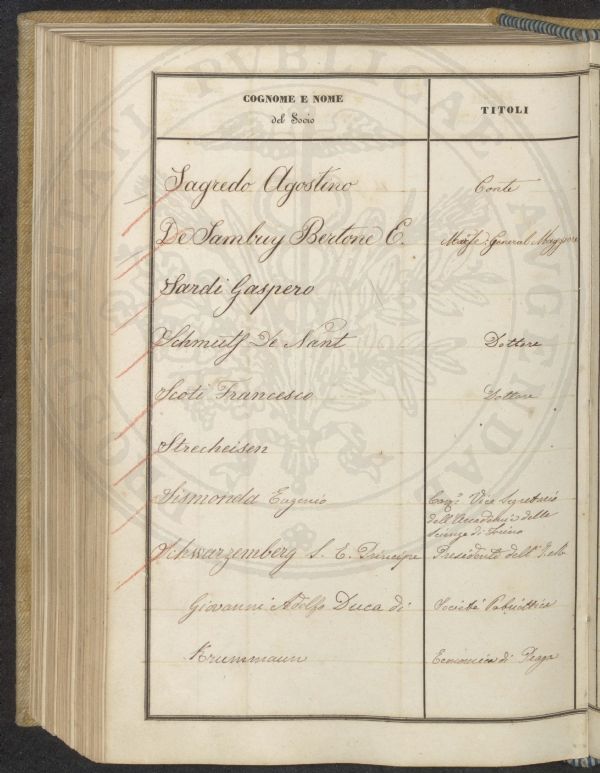 COGNOME E NOME
del Socio
TITOLI
Sagredo Agostino
Conte
De Sambuy Bertone E.
General Maggiore
Sardi Gaspero
Schmutz De Nant
Dottore
Scoti Francesco
Dottore
Strecheisen
Sismonda Eugenio
Vice Segretario
dell'Accademia delle
Scienze di Torino
Schwarzemberg S. E. Principe
Presidente dell'
Giovanni Adolfo Duca di
Società Patriottica
Krummaun
Economica di Praga